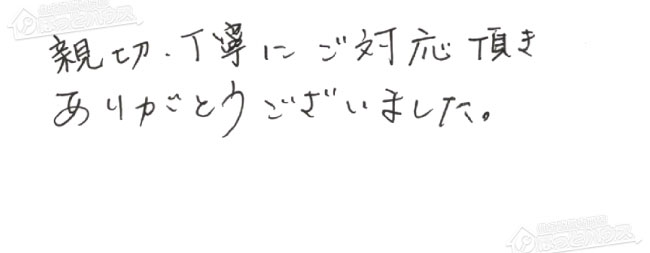 親切・丁寧にご対応頂き
ありがとうございました。